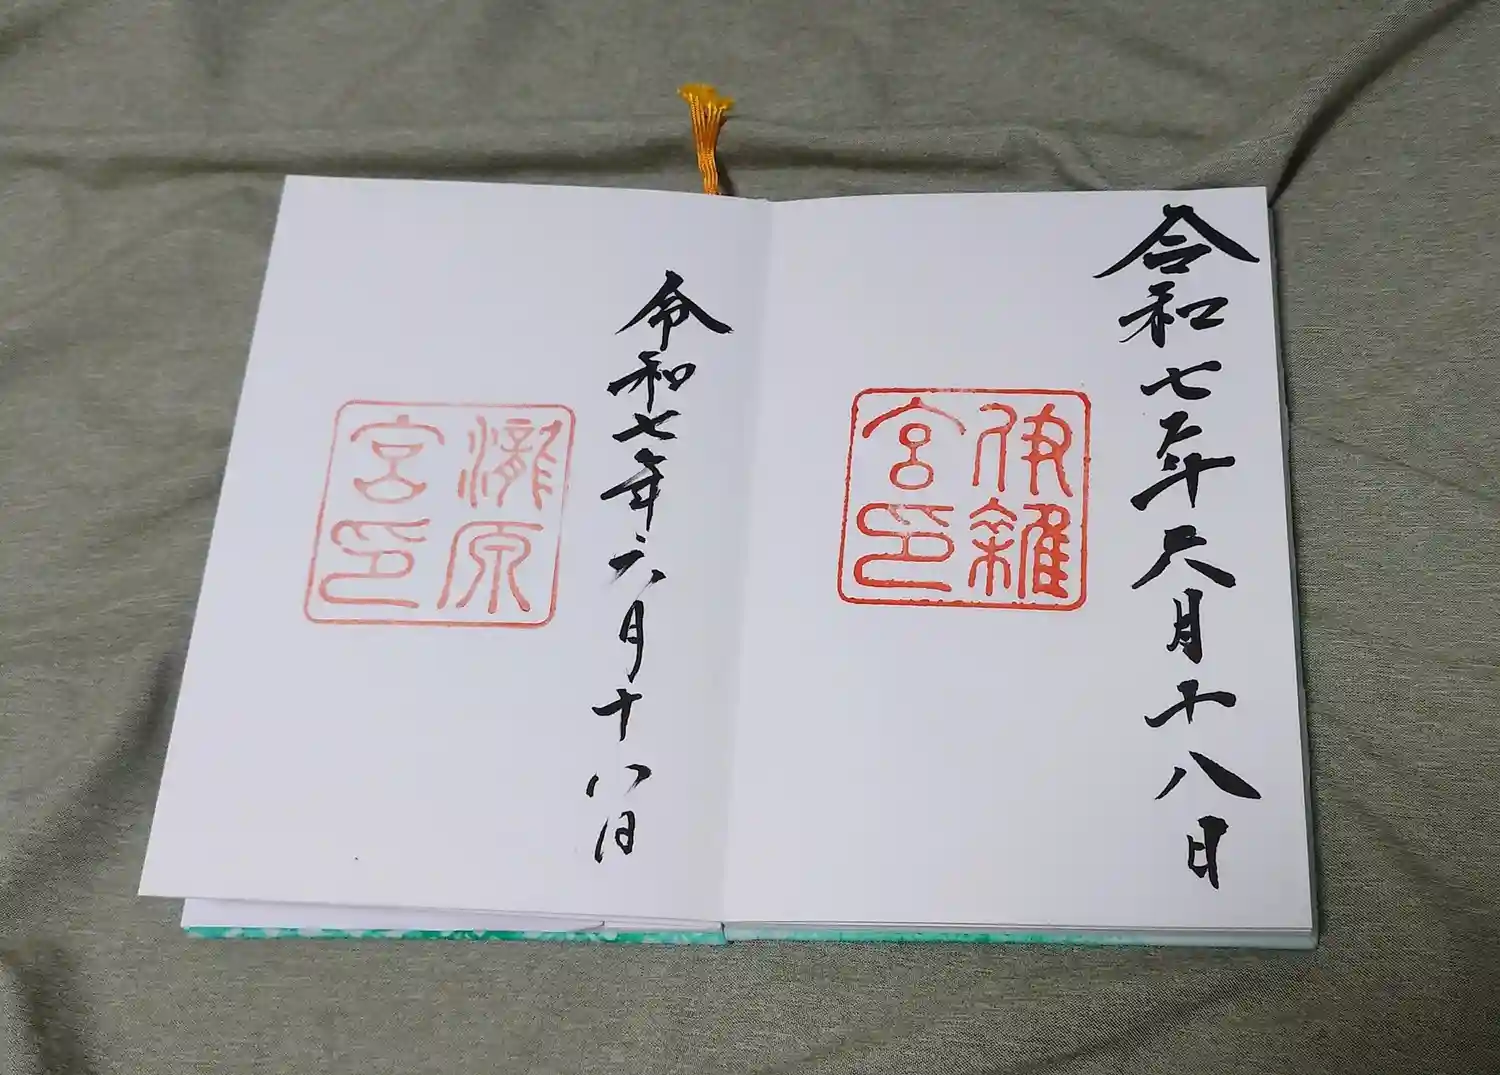 令和七年六月十八日
伊雜
宮印
令和七年六月十八日
瀧原
宮印